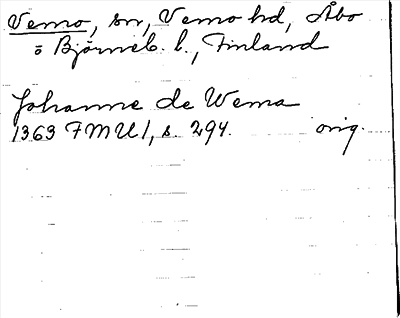 Vemo, sn, Vemo hd, Åbo
o Björneb. l., Finland
Johanne de Wema
1363 FMU 1, s. 294. orig.